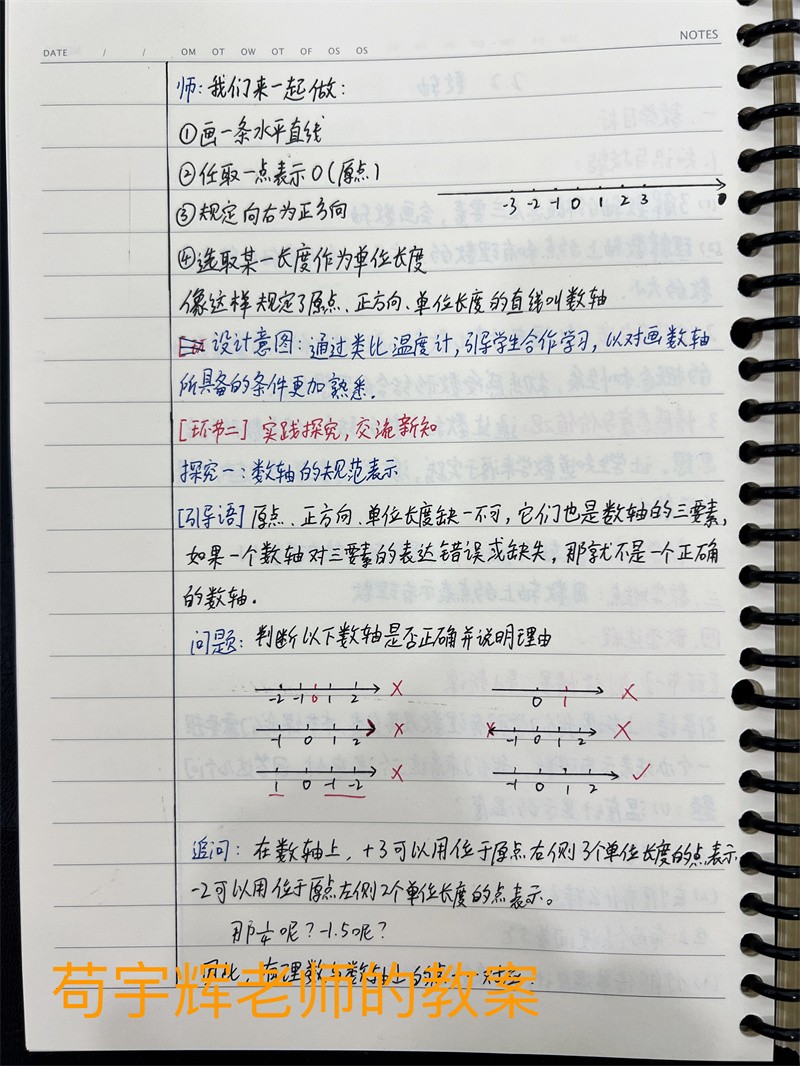 NOTES
DATE / / OM OT OW OT OF OS OS
师：我们来一起做：
①画一条水平直线
②任取一点表示0(原点)
-3 -2 -1 0 1 2 3
③规定向右为正方向
④选取某一长度作为单位长度
像这样规定了原点、正方向、单位长度的直线叫数轴
设计意图：通过类比温度计，引导学生合作学习，以对画数轴
所具备的条件更加熟悉.
[环节二] 实践探究，交流新知
探究一：数轴的规范表示
[引导语] 原点、正方向、单位长度缺一不可，它们也是数轴的三要素，
如果一个数轴对三要素的表达错误或缺失，那就不是一个正确
的数轴.
问题：判断以下数轴是否正确并说明理由
-2 -1 0 1 2 × 0 1 ×
-1 0 1 2 × -1 0 1 2 ×
1 0 -1 -2 × -1 0 1 2 ✓
追问：在数轴上，+3可以用位于原点右侧3个单位长度的点表示
-2可以用位于原点左侧2个单位长度的点表示。
那呢？-1.5呢？
因此，有理数与数轴上的点一一对应.
苟宇辉老师的教案